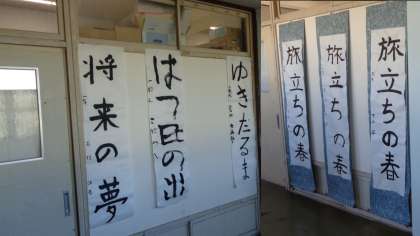 将来の夢
はつ日の出
ゆきだるま
旅立ちの春
旅立ちの春
旅立ちの春